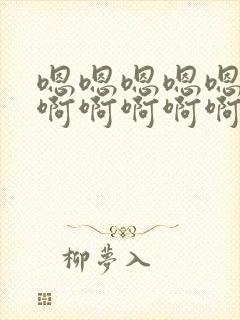 嗯嗯嗯嗯嗯
啊啊啊啊啊
柳夢入